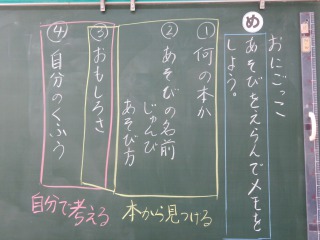 め
おにごっこ
あそびをえらんでメモを
しよう。
①何の本か
②あそびの名前
じゅんび
あそび方
③おもしろさ
④自分のくふう
本から見つける
自分で考える